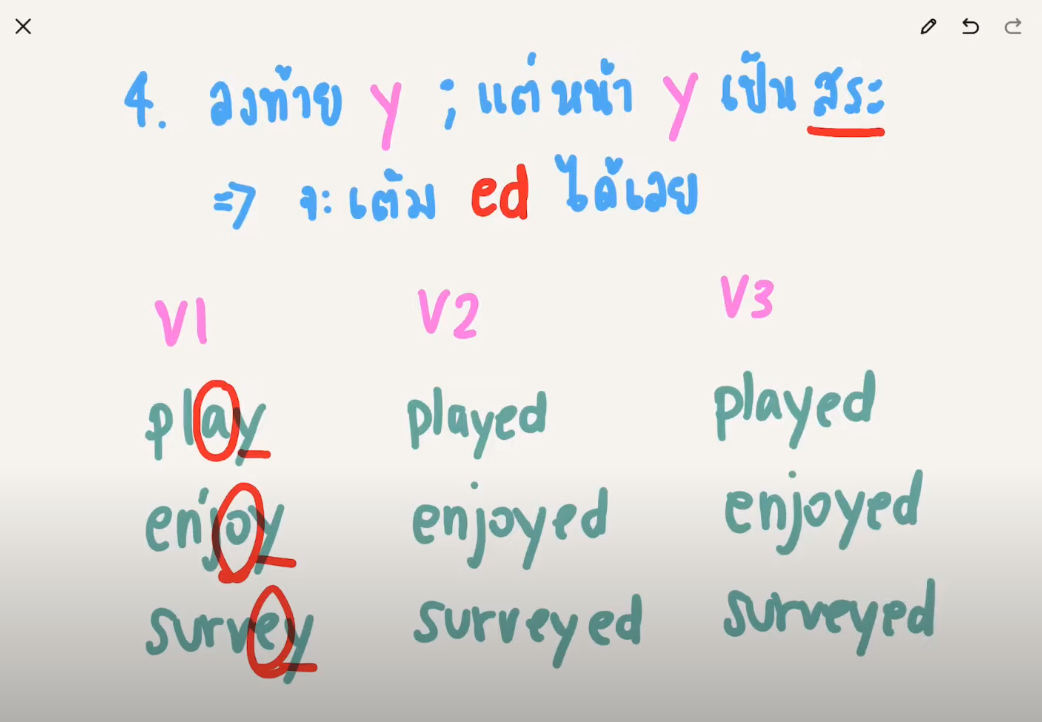 4. ลงท้าย y ; แต่หน้า y เป็น สระ
=> จะเติม ed ได้เลย
V1 V2 V3
play played played
enjoy enjoyed enjoyed
survey surveyed surveyed